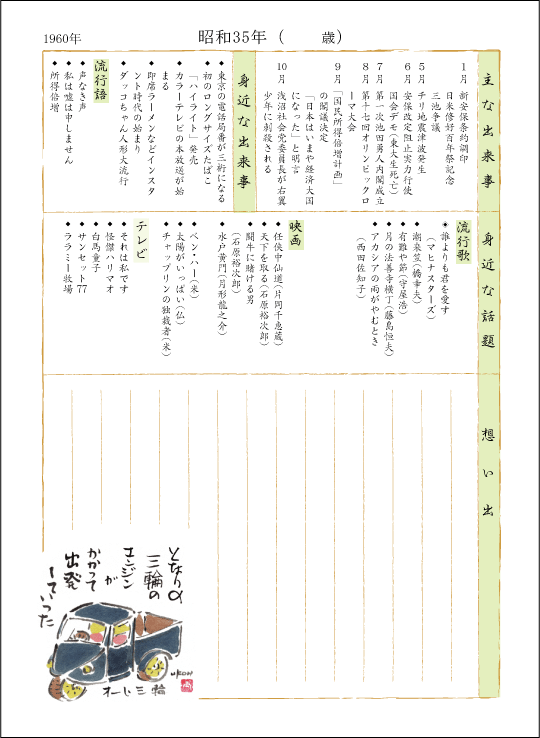 1960年
昭和35年（　　歳）
主な出来事
1月　新安保条約調印
日米修好百年祭記念
三池争議
5月　チリ地震津波発生
6月　安保改定阻止実力行使
国会デモ（東大生死亡）
7月　第一次池田勇人内閣成立
8月　第十七回オリンピックロ
ーマ大会
9月　「国民所得倍増計画」
の閣議決定
「日本はいまや経済大国
になった」と明言
10月　浅沼社会党委員長が右翼
少年に刺殺される
身近な出来事
◆東京の電話局番が三桁になる
◆初のロングサイズたばこ
「ハイライト」発売
◆カラーテレビの本放送が始
まる
◆即席ラーメンなどインスタ
ント時代の始まり
◆ダッコちゃん人形大流行
流行語
◆声なき声
◆私は嘘は申しません
◆所得倍増
身近な話題
流行歌
◆誰よりも君を愛す
（マヒナスターズ）
◆潮来笠（橋幸夫）
◆有難や節（守屋浩）
◆月の法善寺横丁（藤島恒夫）
◆アカシアの雨がやむとき
（西田佐知子）
映画
◆任侠中仙道（片岡千恵蔵）
◆天下を取る（石原裕次郎）
◆闘牛に賭ける男
（石原裕次郎）
◆水戸黄門（月形龍之介）
◆ベン・ハー（米）
◆太陽がいっぱい（仏）
◆チャップリンの独裁者（米）
テレビ
◆それは私です
◆怪傑ハリマオ
◆白馬童子
◆サンセット77
◆ララミー牧場
想い出
となりの
三輪の
エンジン
が
かかって
出発
していった
オート三輪